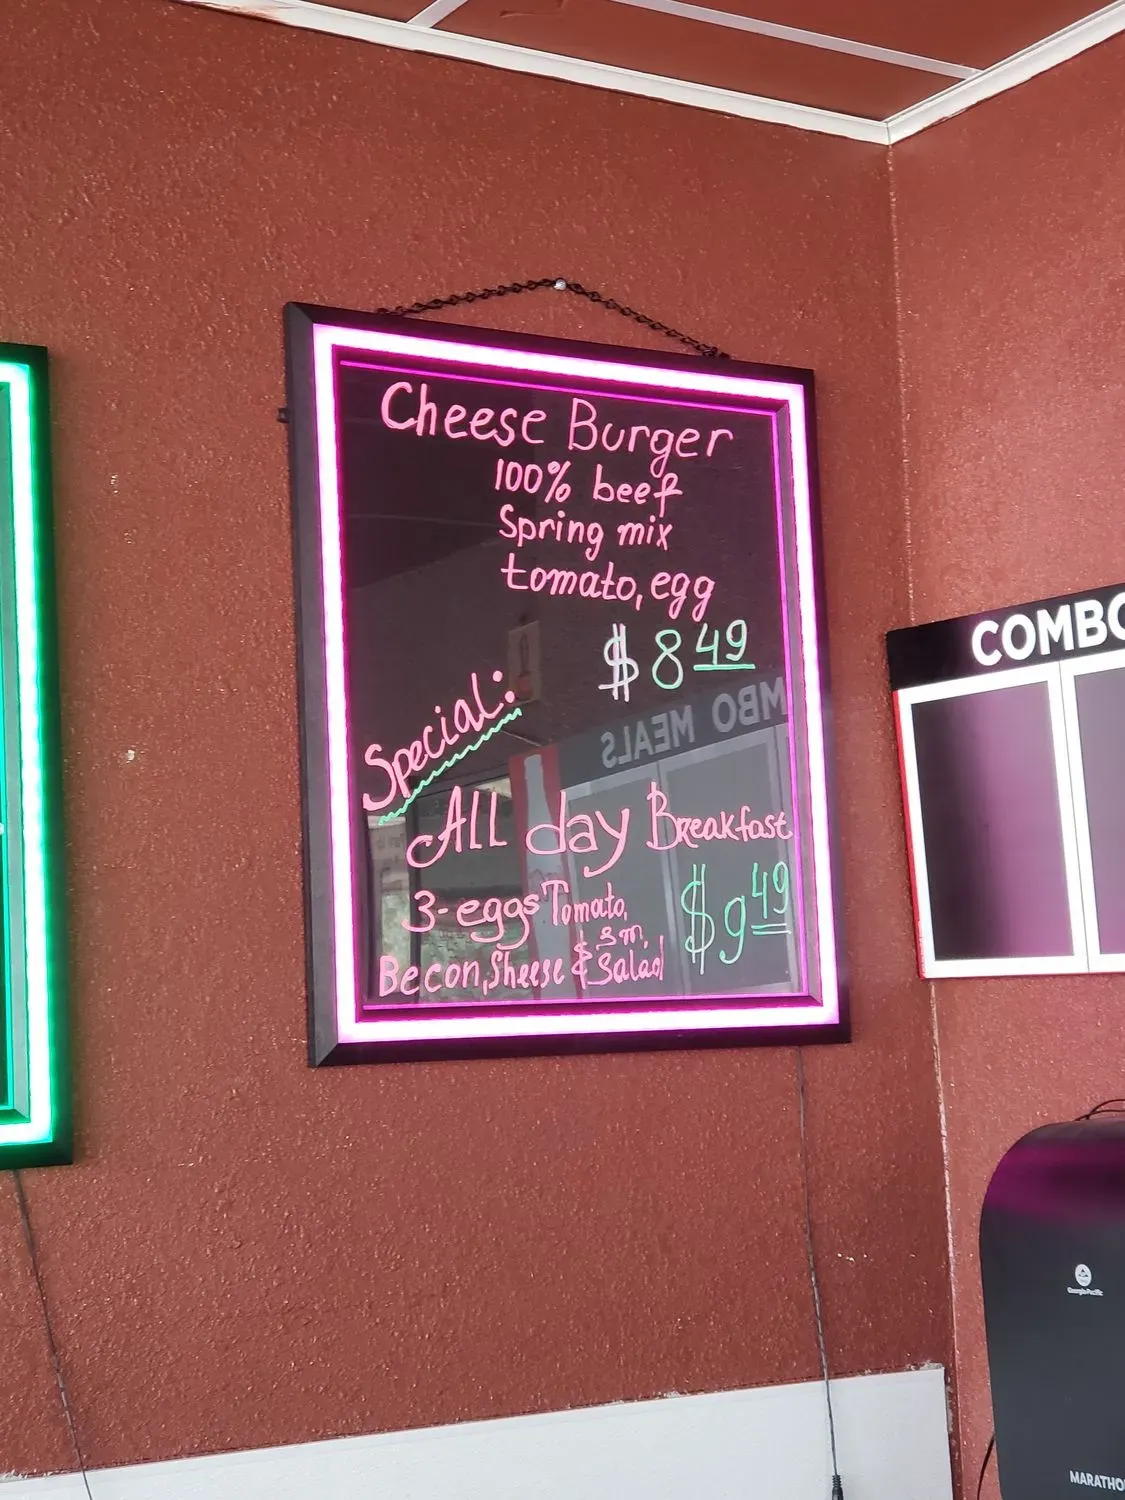 Cheese Burger
100% beef
Spring mix
tomato, egg
$ 8 49
Special:
All day Breakfast
3-eggs Tomato,
$ 9 49
sm.
Becon, Sheese & Salad
COMBO
MBO MEALS
Georgia-Pacific
MARATHO